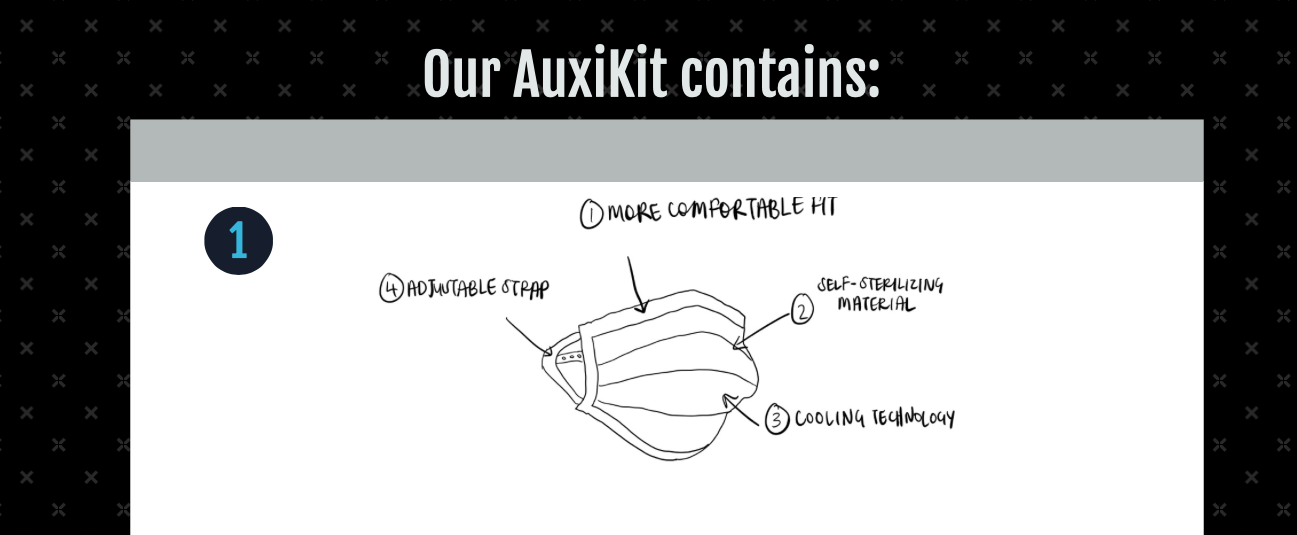 Our AuxiKit contains:
1
① MORE COMFORTABLE FIT
④ ADJUSTABLE STRAP
② SELF-STERILIZING
MATERIAL
③ COOLING TECHNOLOGY